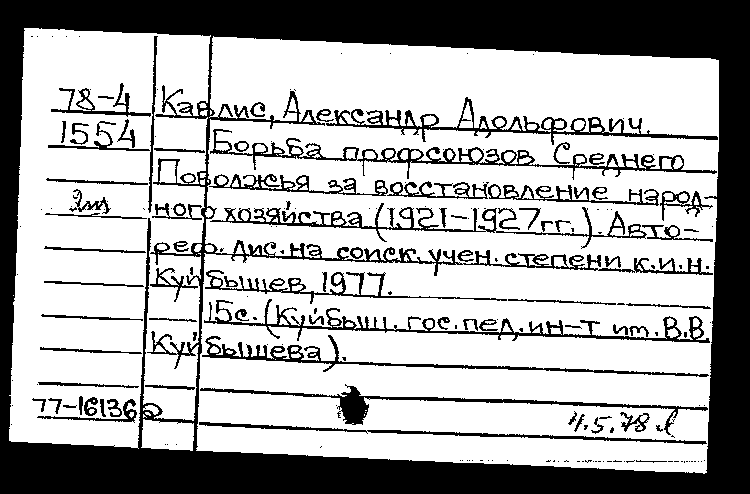 78-4 Кавлис, Александр Адольфович.
1554 Борьба профсоюзов Среднего
Поволжья за восстановление народ-
ного хозяйства (1921-1927гг.). Авто-
реф. дис. на соиск. учен. степени к.и.н.
Куйбышев, 1977.
15с. (Куйбыш. гос. пед. ин-т им. В.В.
Куйбышева).
77-16136
4.5.78